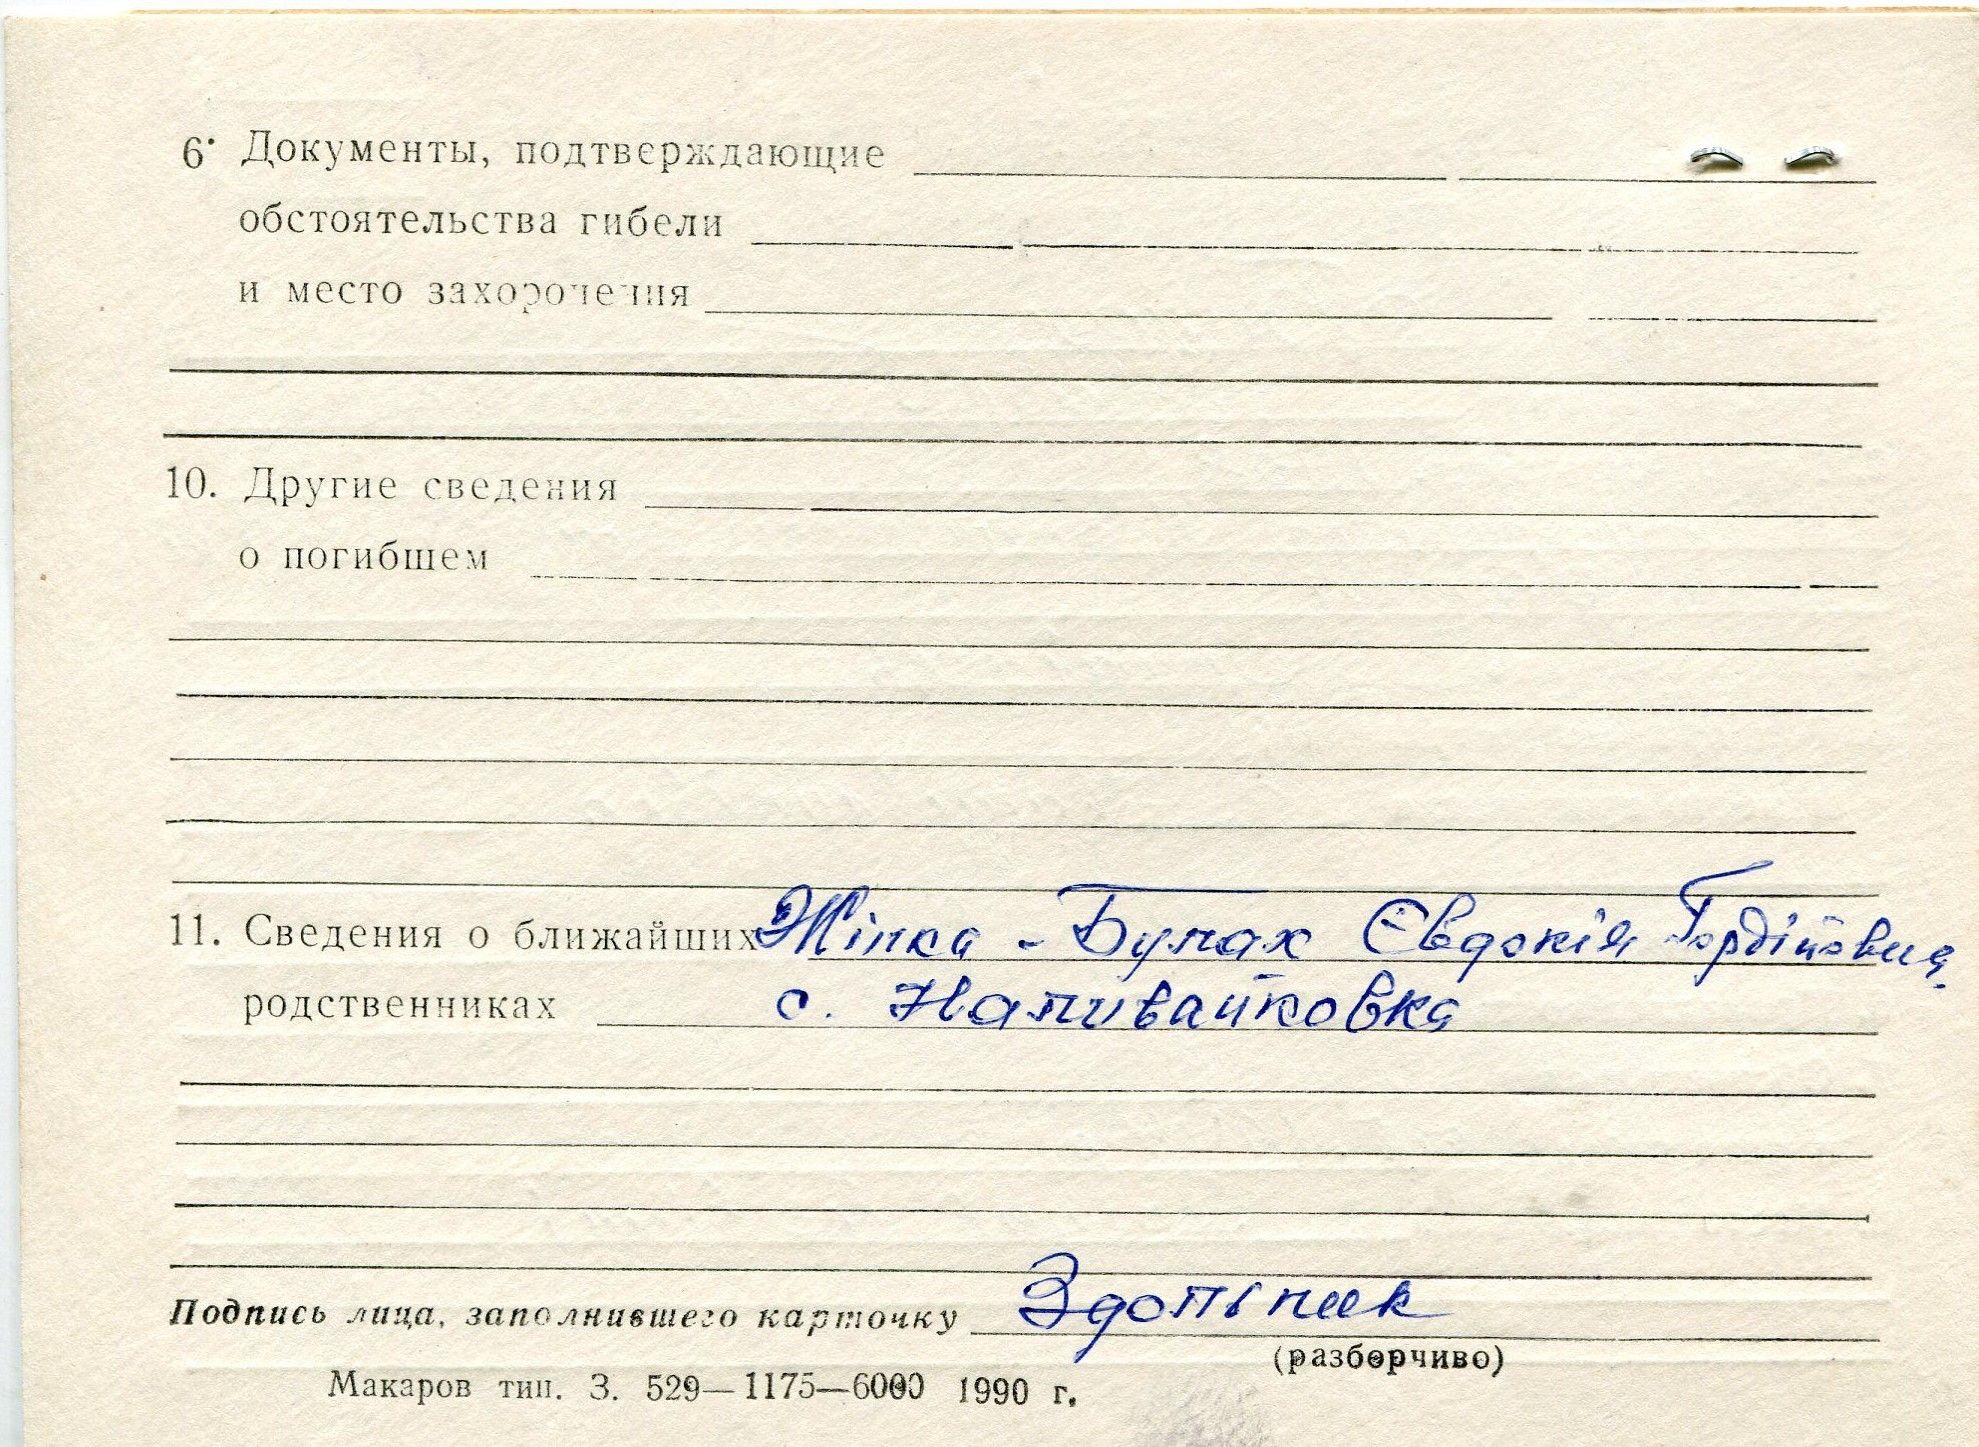 6. Документы, подтверждающие
обстоятельства гибели
и место захоронения
10. Другие сведения
о погибшем
11. Сведения о ближайших Жінка - Булах Євдокія Гордіївна,
родственниках с. Наливайковка
Подпись лица, заполнившего карточку
(разборчиво)
Макаров тип. З. 529—1175—6000 1990 г.